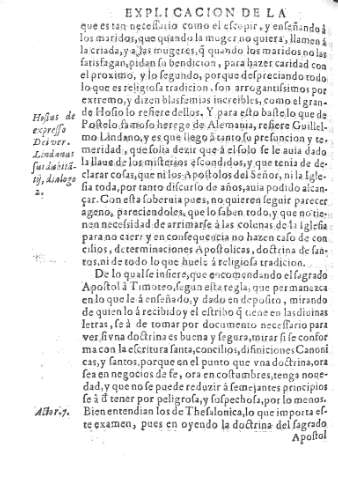 EXPLICACION DE LA
que es tan necessario como el escopir, y enseñando à
los maridos, que quando la muger no quiera, llamen à
la criada, y a las mugeres, q̃ quando los maridos no las
satisfagan, pidan su bendicion, para hazer caridad con
el proximo, y lo segundo, porque despreciando todo
lo que es religiosa tradicion, son arrogantissimos por
extremo, y dizen blasfemias increibles, como el gran-
de Hosio lo refiere dellos. Y para esto baste, lo que de
Postelo, famoso herege de Alemania, refiere Guillel-
mo Lindano, y es que llegò à tanto su presuncion y te-
meridad, que solia dezir que à el solo se le auia dado
la llaue de los misterios escondidos, y que tenia de de-
clarar cosas, que ni los Apostoles del Señor, ni la Igle-
sia toda, por tanto discurso de años, auia podido alcan-
çar. Con esta soberuia pues, no quieren seguir parecer
ageno, pareciendoles, que lo saben todo, y que no tie-
nen necessidad de arrimarse à las colunas de la Iglesia
para no caer; y en consequencia no hazen caso de con
cilios, determinaciones Apostolicas, doctrina de san-
tos, ni de todo lo que huele à religiosa tradicion.
Hosius de
expresso
Dei ver.
Lindanus
dialogo
2.
De lo qual se infiere, que encomendando el sagrado
Apostol à Timoteo, segun esta regla, que permanezca
en lo que le à enseñado, y dado en deposito, mirando
de quien lo à recibido y el estribo q̃ tiene en las diuinas
letras, se à de tomar por documento necessario para
ver, si vna doctrina es buena y segura, mirar si se confor
ma con la escritura santa, concilios, difiniciones Canoni
cas, y santos, porque en el punto que vna doctrina, ora
sea en negocios de fe, ora en costumbres, tenga noue-
dad, y que no se puede reduzir à semejantes principios
se à de tener por peligrosa, y sospechosa, por lo menos.
Actor. 7.
Bien entendian los de Thesalonica, lo que importa es-
te examen, pues en oyendo la doctrina del sagrado
Apostol